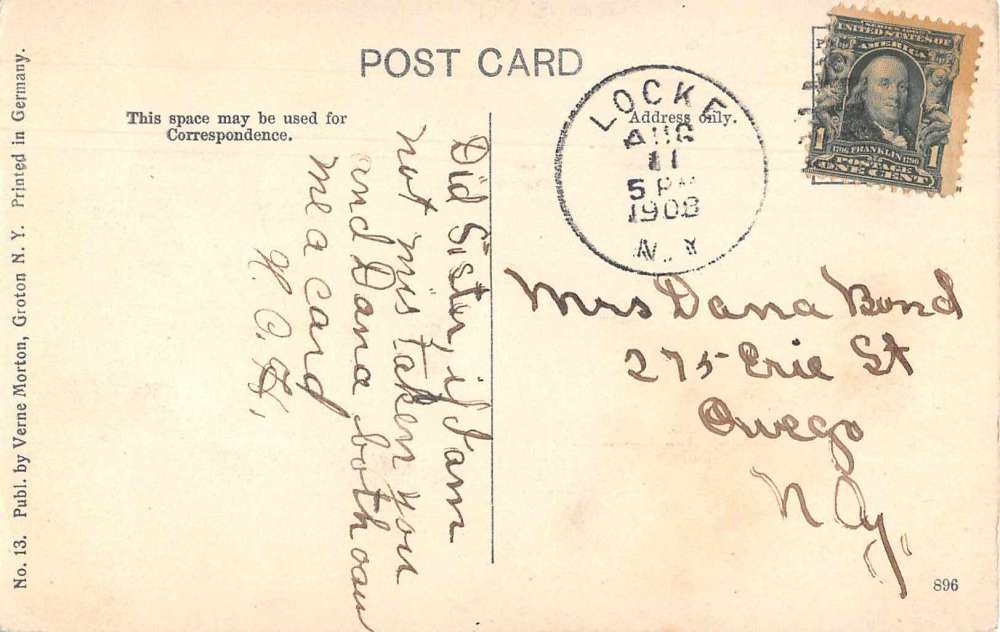 POST CARD
This space may be used for
Correspondence.
Address only.
LOCKE
AUG
11
5 PM
1908
N.Y
SERIES 1902
UNITED STATES OF
AMERICA
1706 FRANKLIN 1790
POSTAGE
1 ONE CENT 1
Did Sister, if I am
not mistaken you
and Dana both owe
me a card
H. C. H.
Mrs Dana Bond
275 Erie St
Owego
N.Y.
896
No. 13. Publ. by Verne Morton, Groton N. Y. Printed in Germany.